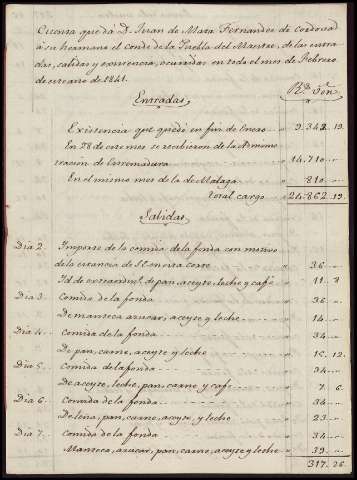 Cuenta que dá D. Juan de Mata Fernandez de Cordoba
á su hermano el Conde de la Puebla del Maestre, de las entra
das, salidas y existencia, ocurridas en todo el mes de Febrero
de este año de 1841.
Entradas
Rs. Von.
Existencia que quedó en fin de Enero " 9.342..19.
En 28 de este mes se recibieron de la Adminis
tracion de Estremadura " 14.710..
En el mismo mes de la de Malaga " 810..
Total cargo " 24.862..19.
Salidas
Dia 2. Importe de la comida de la fonda con motivo
de la estancia de S.E. en esta corte " 36..
Id. de extraord. de pan, aceyte, leche y café " 11..8
Dia 3. Comida de la fonda " 36..
De manteca azucar, aceyte y leche " 14..
Dia 4. Comida de la fonda " 34..
De pan, carne, aceyte y leche " 15..12.
Dia 5. Comida de la fonda " 34..
De aceyte, leche, pan, carne y café " 7..6.
Dia 6. Comida de la fonda " 34..
De leña, pan, carne, aceyte, y leche " 23..
Dia 7. Comida de la fonda " 34..
Manteca, azucar, pan, carne, aceyte y leche " 39..
317..26.